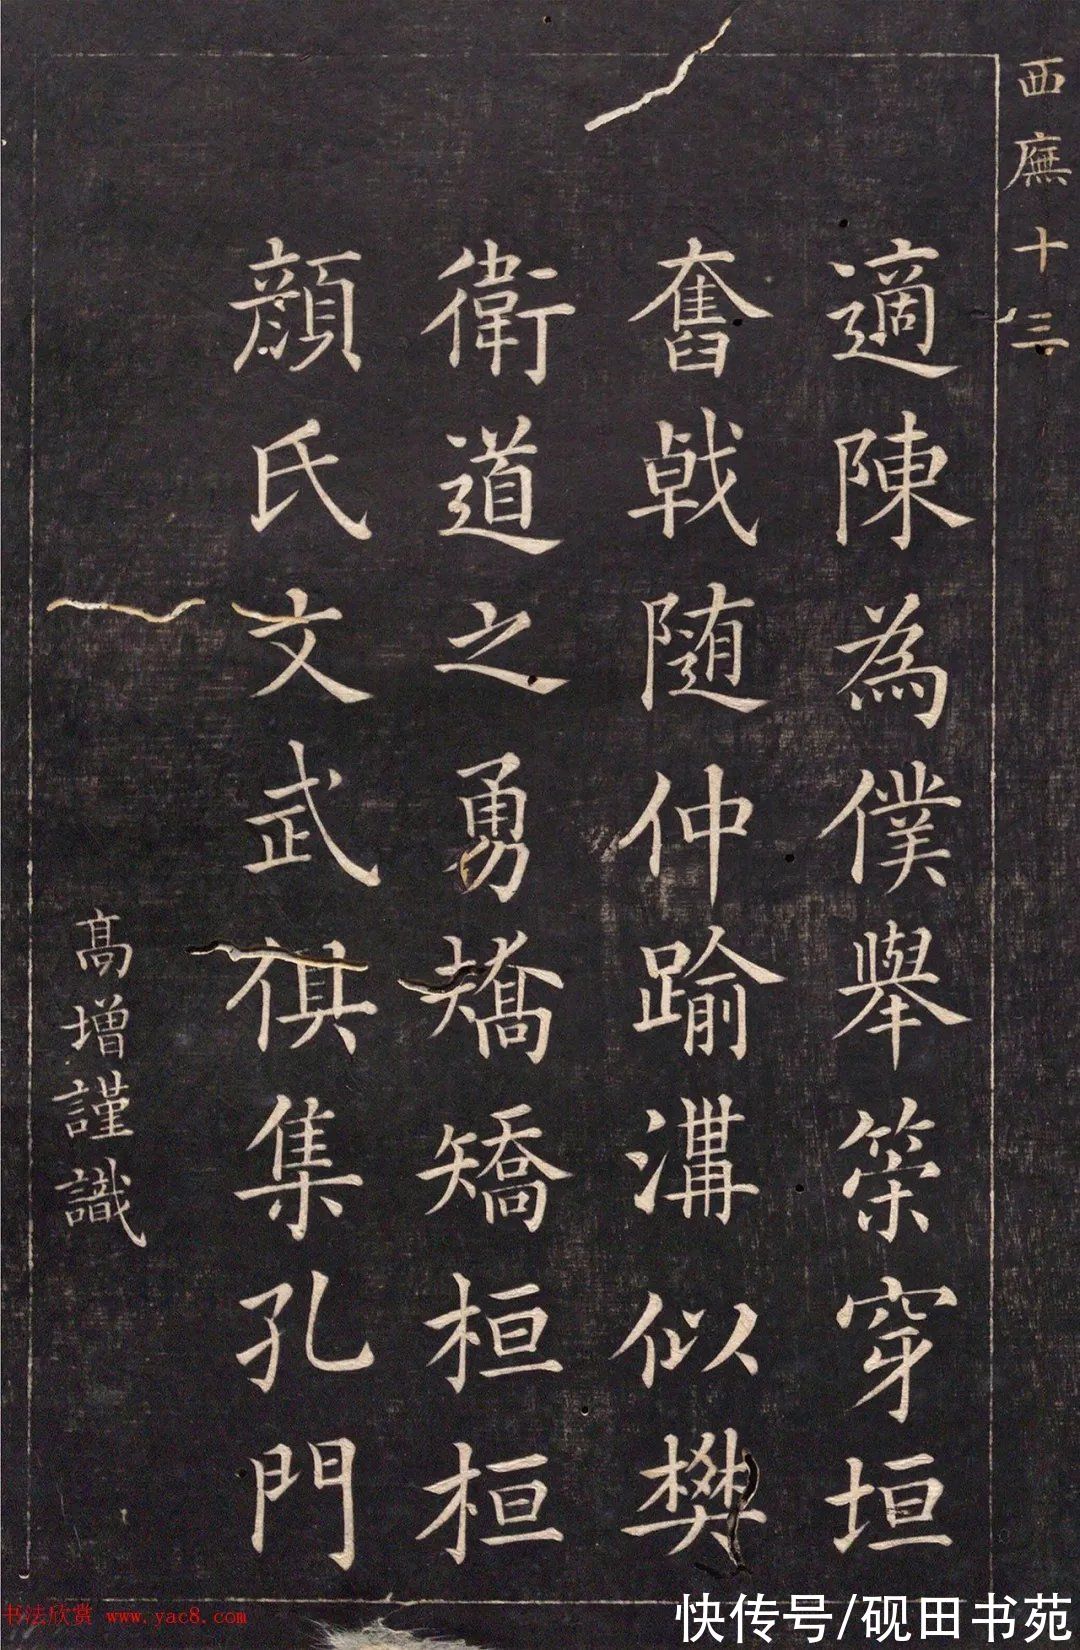 西廡十三
適陳為僕舉策穿垣
奮戟随仲踰溝似樊
衛道之勇矯矯桓桓
顔氏文武俱集孔門
高增謹識
书法欣赏 www.yac8.com
快传号/砚田书苑